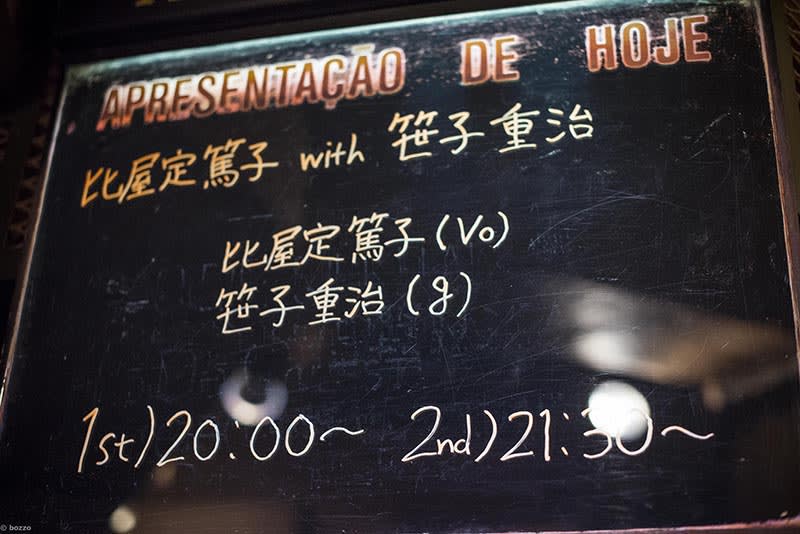 APRESENTAÇÃO DE HOJE
比屋定篤子 with 笹子重治
比屋定篤子 (Vo)
笹子重治 (g)
1st) 20:00～ 2nd) 21:30～
© bozzo